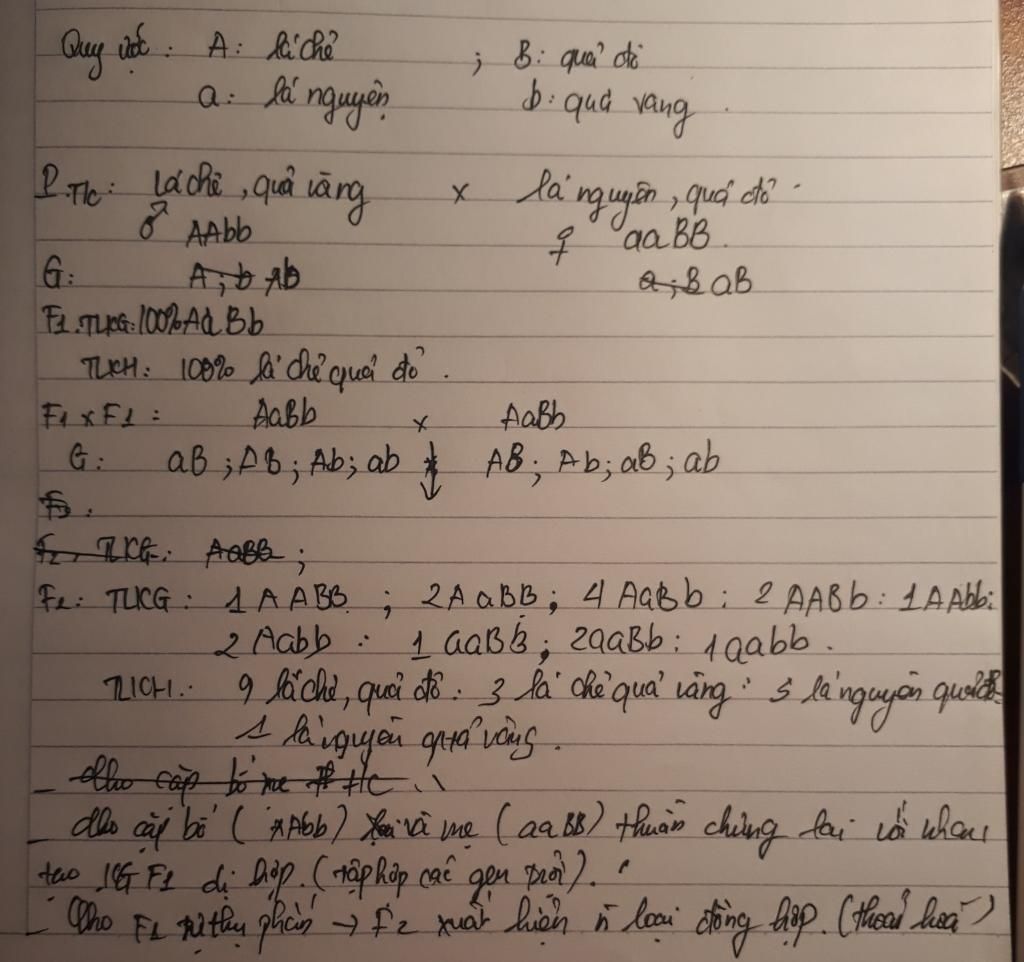 Quy ước : A : lá chẻ ; B : quả đỏ
a : lá nguyên b : quả vàng .
P.T/c : Lá chẻ , quả vàng x lá nguyên , quả đỏ .
♂ AAbb ♀ aaBB .
G : A ; b Ab a ; B aB
F1 . TLKG : 100% AaBb
TLKH : 100% lá chẻ quả đỏ .
F1 x F1 : AaBb x AaBb
G : aB ; AB ; Ab ; ab ↓ AB ; Ab ; aB ; ab
F2 . TLKG : AaBB ;
F2 : TLKG : 1 AABB ; 2AaBB ; 4 AaBb : 2 AABb : 1AAbb :
2 Aabb : 1 aaBB ; 2aaBb : 1aabb .
TLKH : 9 lá chẻ , quả đỏ : 3 lá chẻ quả vàng : 3 lá nguyên quả đỏ
1 lá nguyên quả vàng .
- Cho cặp bố mẹ t/c
- Cho cặp bố ( AAbb ) và mẹ ( aaBB ) thuần chủng lai với nhau
tạo KG F1 dị hợp . ( tập hợp các gen trội ) .
- Cho F1 tự thụ phấn → F2 xuất hiện n loại đồng hợp . ( thoái hoá )